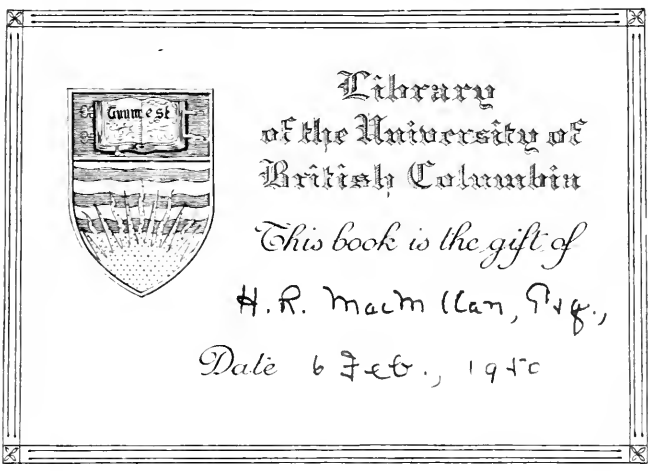 Tuum est
Library
of the University of
British Columbia
This book is the gift of
H.R. MacMillan, Esq.,
Date 6 Feb., 1950